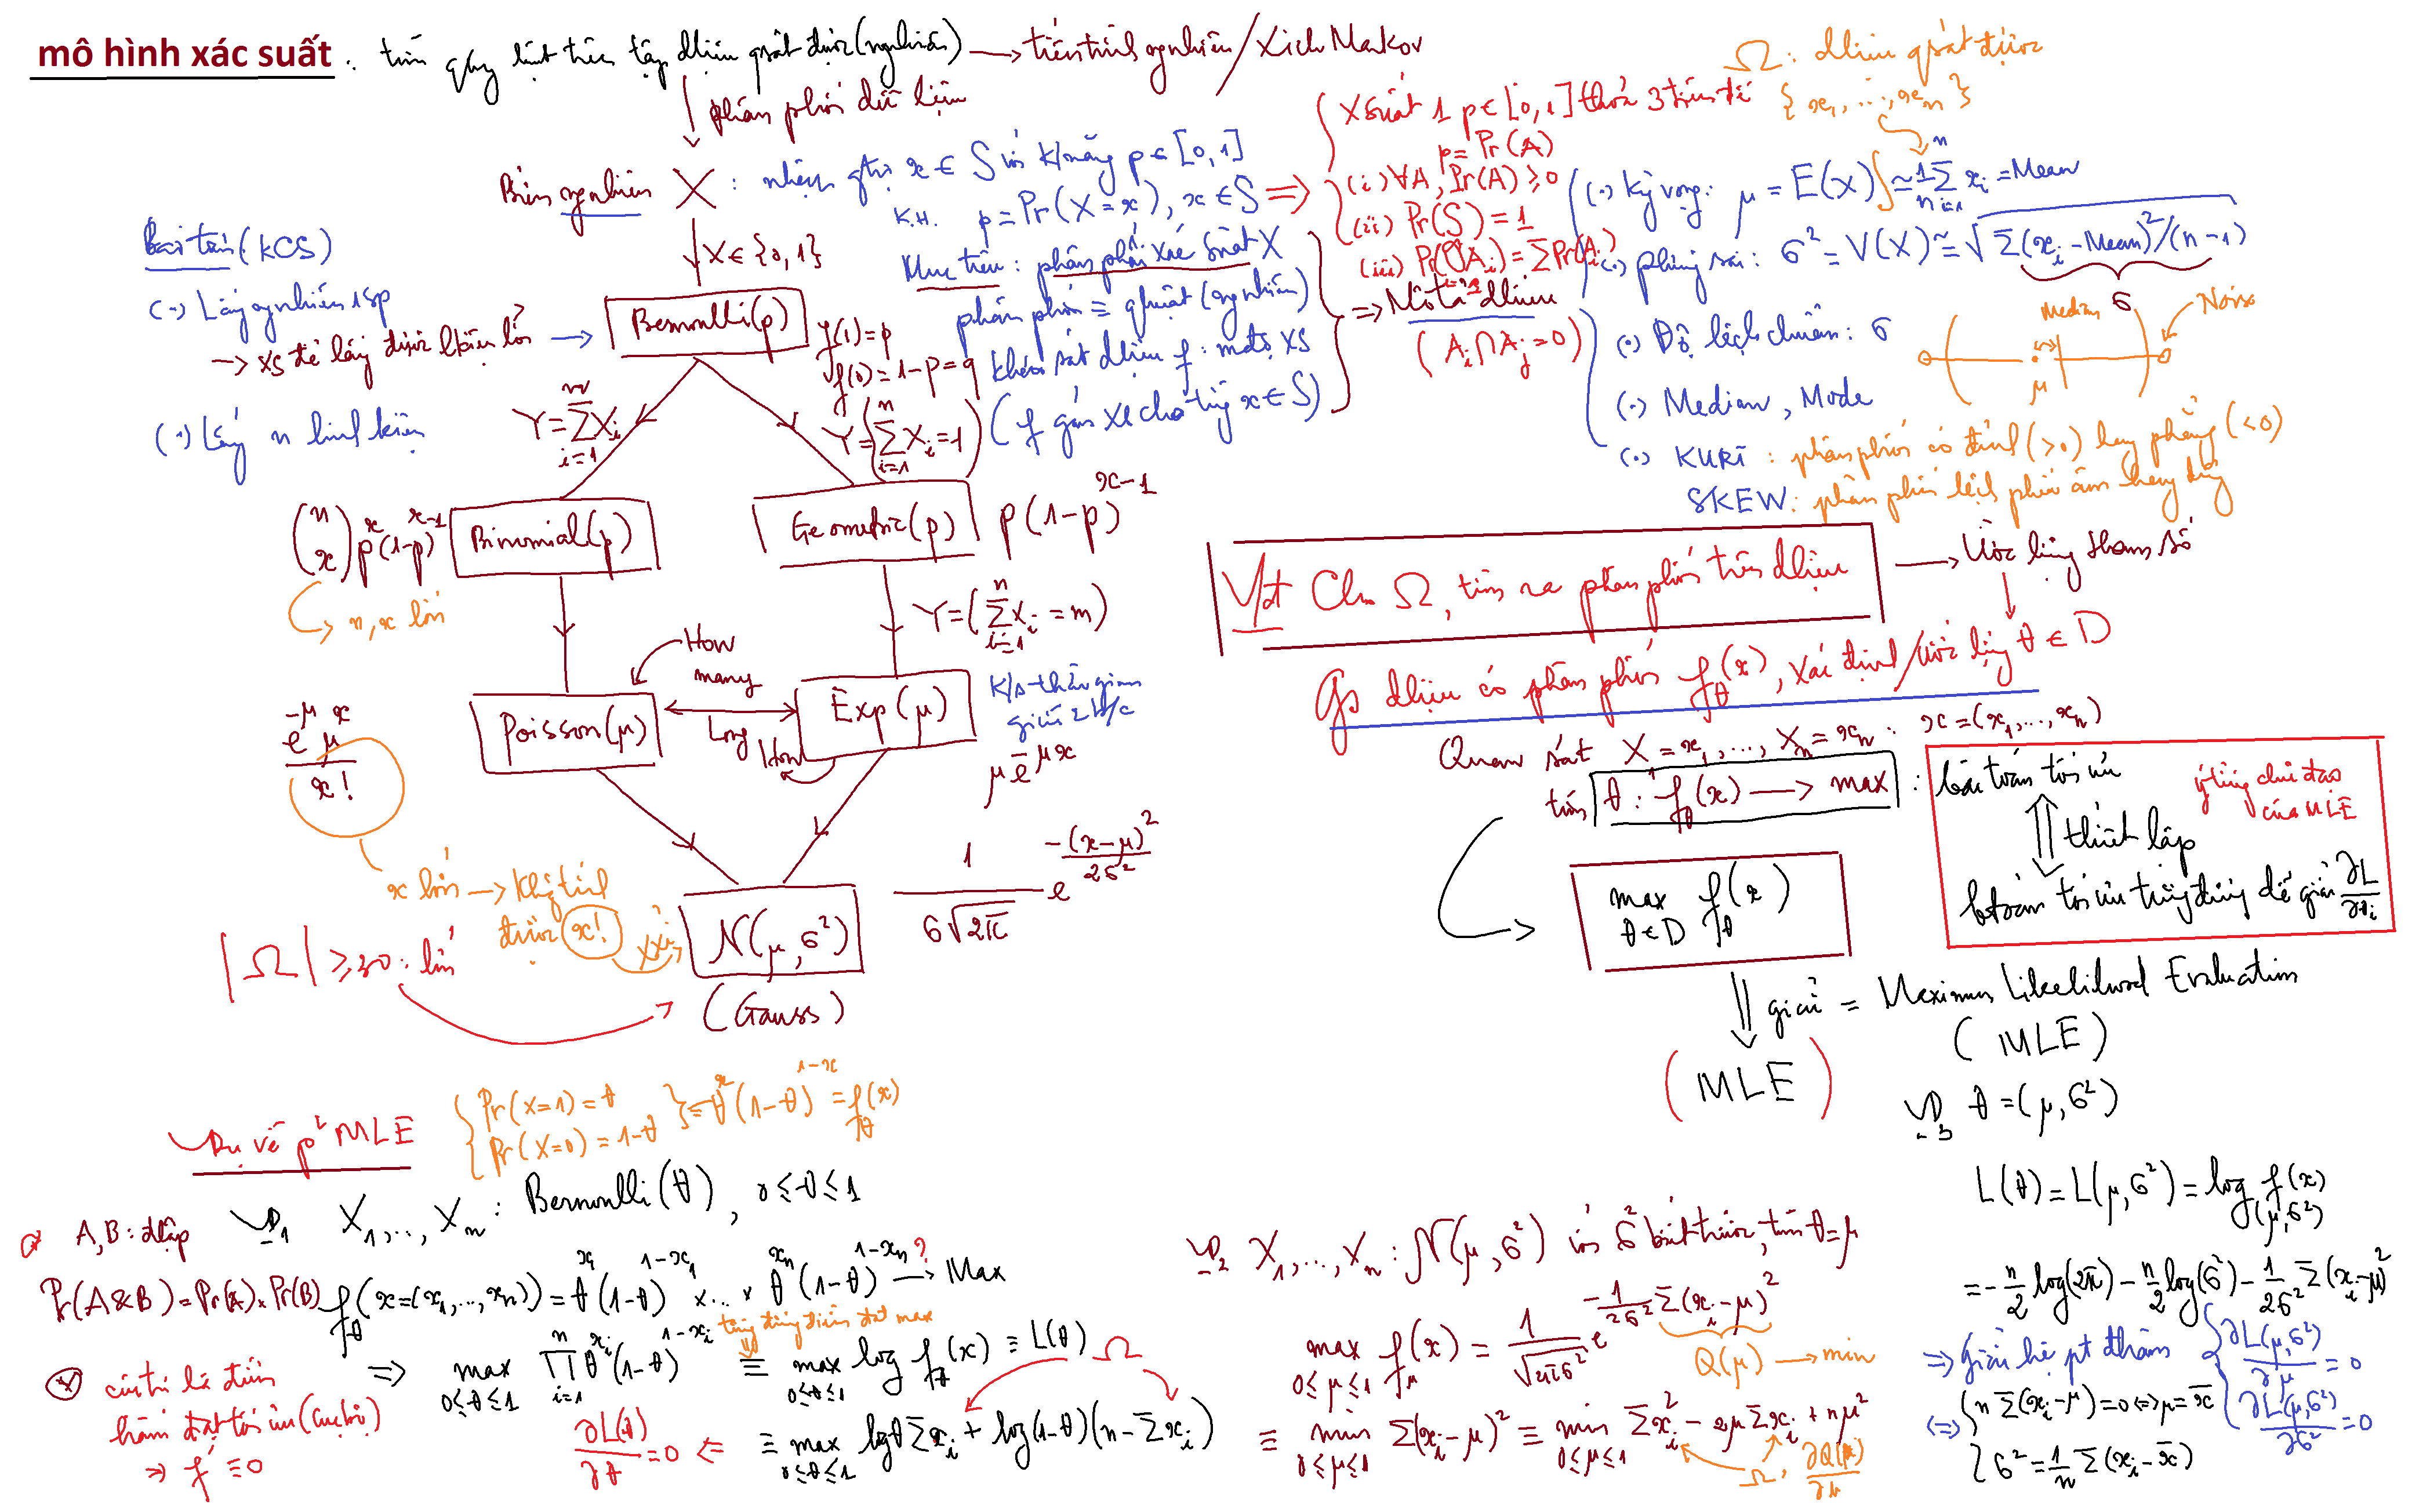 mô hình xác suất : tìm quy luật trên tập dliệu qsát được (ngnhiên) → tiến trình ngnhiên / Xích Markov
phân phối dữ liệu
Biến ngnhiên X : nhận gtrị x ∈ S với k/năng p ∈ [0,1]
K.H. p = Pr(X = x), x ∈ S ⇒
X ∈ {0,1}
Mục tiêu : phân phối xác suất X
phân phối ≡ qluật (ngnhiên)
khảo sát dliệu f : mđộ XS
(f gán XS cho từng x ∈ S)
⇒ Mô tả dliệu
Xsuất 1 p ∈ [0,1] thoả 3 tiên đề
p = Pr(A)
(i) ∀A, Pr(A) ≥ 0
(ii) Pr(S) = 1
(iii) Pr(∪A_i) = ΣPr(A_i)
(A_i ∩ A_j = 0)
Ω : dliệu qsát được
{x_1, ..., x_n}
(·) Kỳ vọng : μ = E(X) ≃ 1/n Σ_{i=1}^n x_i = Mean
(·) phương sai : σ² = V(X) ≃ √Σ(x_i - Mean)²/(n-1)
σ
(·) Độ lệch chuẩn : σ
(·) Median, Mode
Median
Noise
μ
(·) KURT : phân phối có đỉnh (>0) hay phẳng (<0)
SKEW : phân phối lệch phía âm hay dương
bài toán (KCS)
(·) Lấy ngnhiên 1sp
→ XS để lấy được lkiện lỗi →
(·) Lấy n linh kiện
Bernoulli(p)
f(1) = p
f(0) = 1-p = q
Y = Σ_{i=1}^n X_i
Y = (Σ_{i=1}^n X_i = 1)
(n x) p^x (1-p)^{x-1}
Binomial(p)
Geometric(p)
p(1-p)^{x-1}
→ n, x lớn
Y = (Σ_{i=1}^n X_i = m)
How many
Poisson(μ)
Exp(μ)
How Long
K/s thời gian giữa 2 b/c
e^{-μ} μ^x / x!
μe^{-μx}
x lớn → không tính được x!
xxỉ
|Ω| ≥ 30 : lớn
N(μ, σ²)
(Gauss)
1/(σ√2π) e^{-(x-μ)²/2σ²}
Vđ Cho Ω, tìm ra phân phối trên dliệu
→ Ước lượng tham số
Gs dliệu có phân phối f_θ(x), xác định/ước lượng θ ∈ D
Quan sát X_1 = x_1, ..., X_n = x_n : x = (x_1, ..., x_n)
tìm θ : f_θ(x) → max : bài toán tối ưu
thiết lập
btoán tối ưu tương đương dể giải ∂L/∂θ_i
ý tưởng chủ đạo của MLE
max_{θ∈D} f_θ(x)
giải = Maximum Likelihood Evaluation
(MLE)
(MLE)
Vdụ về p² MLE
Pr(X=1) = θ
Pr(X=0) = 1-θ
≡ θ^x (1-θ)^{1-x} = f_θ(x)
VD1 X_1, ..., X_n : Bernoulli(θ), 0 ≤ θ ≤ 1
A, B : đlập
Pr(A&B) = Pr(A) × Pr(B)
f_θ(x = (x_1, ..., x_n)) = θ^{x_1}(1-θ)^{1-x_1} × ... × θ^{x_n}(1-θ)^{1-x_n} →? Max
tương đương điểm đạt max
⇒ max_{0≤θ≤1} Π_{i=1}^n θ^{x_i}(1-θ)^{1-x_i} ≡ max_{0≤θ≤1} log f_θ(x) ≡ L(θ)
Ω
≡ max_{0≤θ≤1} logθ Σx_i + log(1-θ)(n - Σx_i)
∂L(θ)/∂θ = 0 ⇐
cực trị là điểm
hàm đạt tối ưu (cục bộ)
⇒ f' ≡ 0
VD2 X_1, ..., X_n : N(μ, σ²) với σ² biết trước, tìm θ = μ
max_{0≤μ≤1} f_μ(x) = 1/√2πσ² e^{-1/2σ² Σ(x_i-μ)²}
Q(μ) → min
≡ min_{0≤μ≤1} Σ(x_i - μ)² ≡ min_{0≤μ≤1} Σx_i² - 2μΣx_i + nμ²
Ω, ∂Q(μ)/∂μ
VD3 θ = (μ, σ²)
L(θ) = L(μ, σ²) = log f_{(μ,σ²)}(x)
= -n/2 log(2π) - n/2 log(σ²) - 1/2σ² Σ(x_i-μ)²
⇒ giải hệ pt
∂L(μ,σ²)/∂μ = 0
∂L(μ,σ²)/∂σ² = 0
⇔ n Σ(x_i-μ) = 0 ⇔ μ = x̄
σ² = 1/n Σ(x_i - x̄)